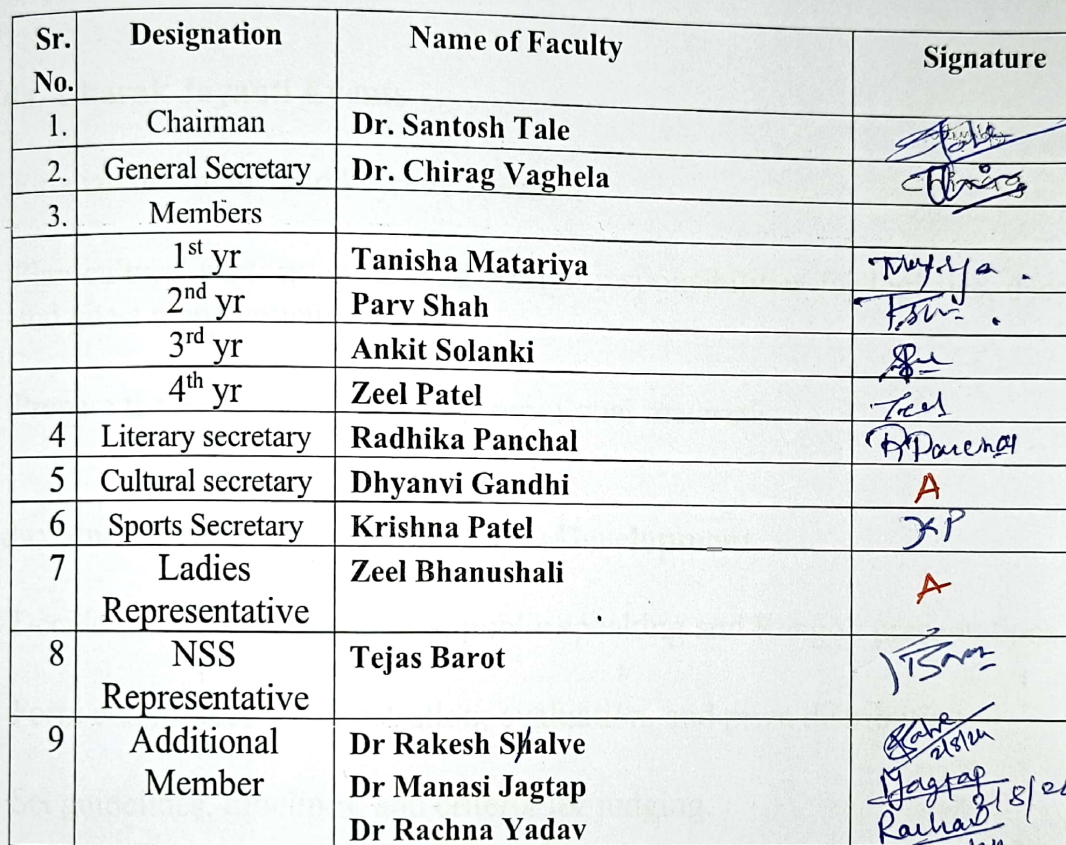 Sr. No. Designation Name of Faculty Signature
1. Chairman Dr. Santosh Tale
2. General Secretary Dr. Chirag Vaghela Chirag
3. Members
1st yr Tanisha Matariya
2nd yr Parv Shah
3rd yr Ankit Solanki
4th yr Zeel Patel Zeel
4 Literary secretary Radhika Panchal RPanchal
5 Cultural secretary Dhyanvi Gandhi A
6 Sports Secretary Krishna Patel KP
7 Ladies Zeel Bhanushali A
Representative
8 NSS Tejas Barot
Representative
9 Additional Dr Rakesh Shalve
2/8/24
Member Dr Manasi Jagtap Jagtap
Dr Rachna Yadav